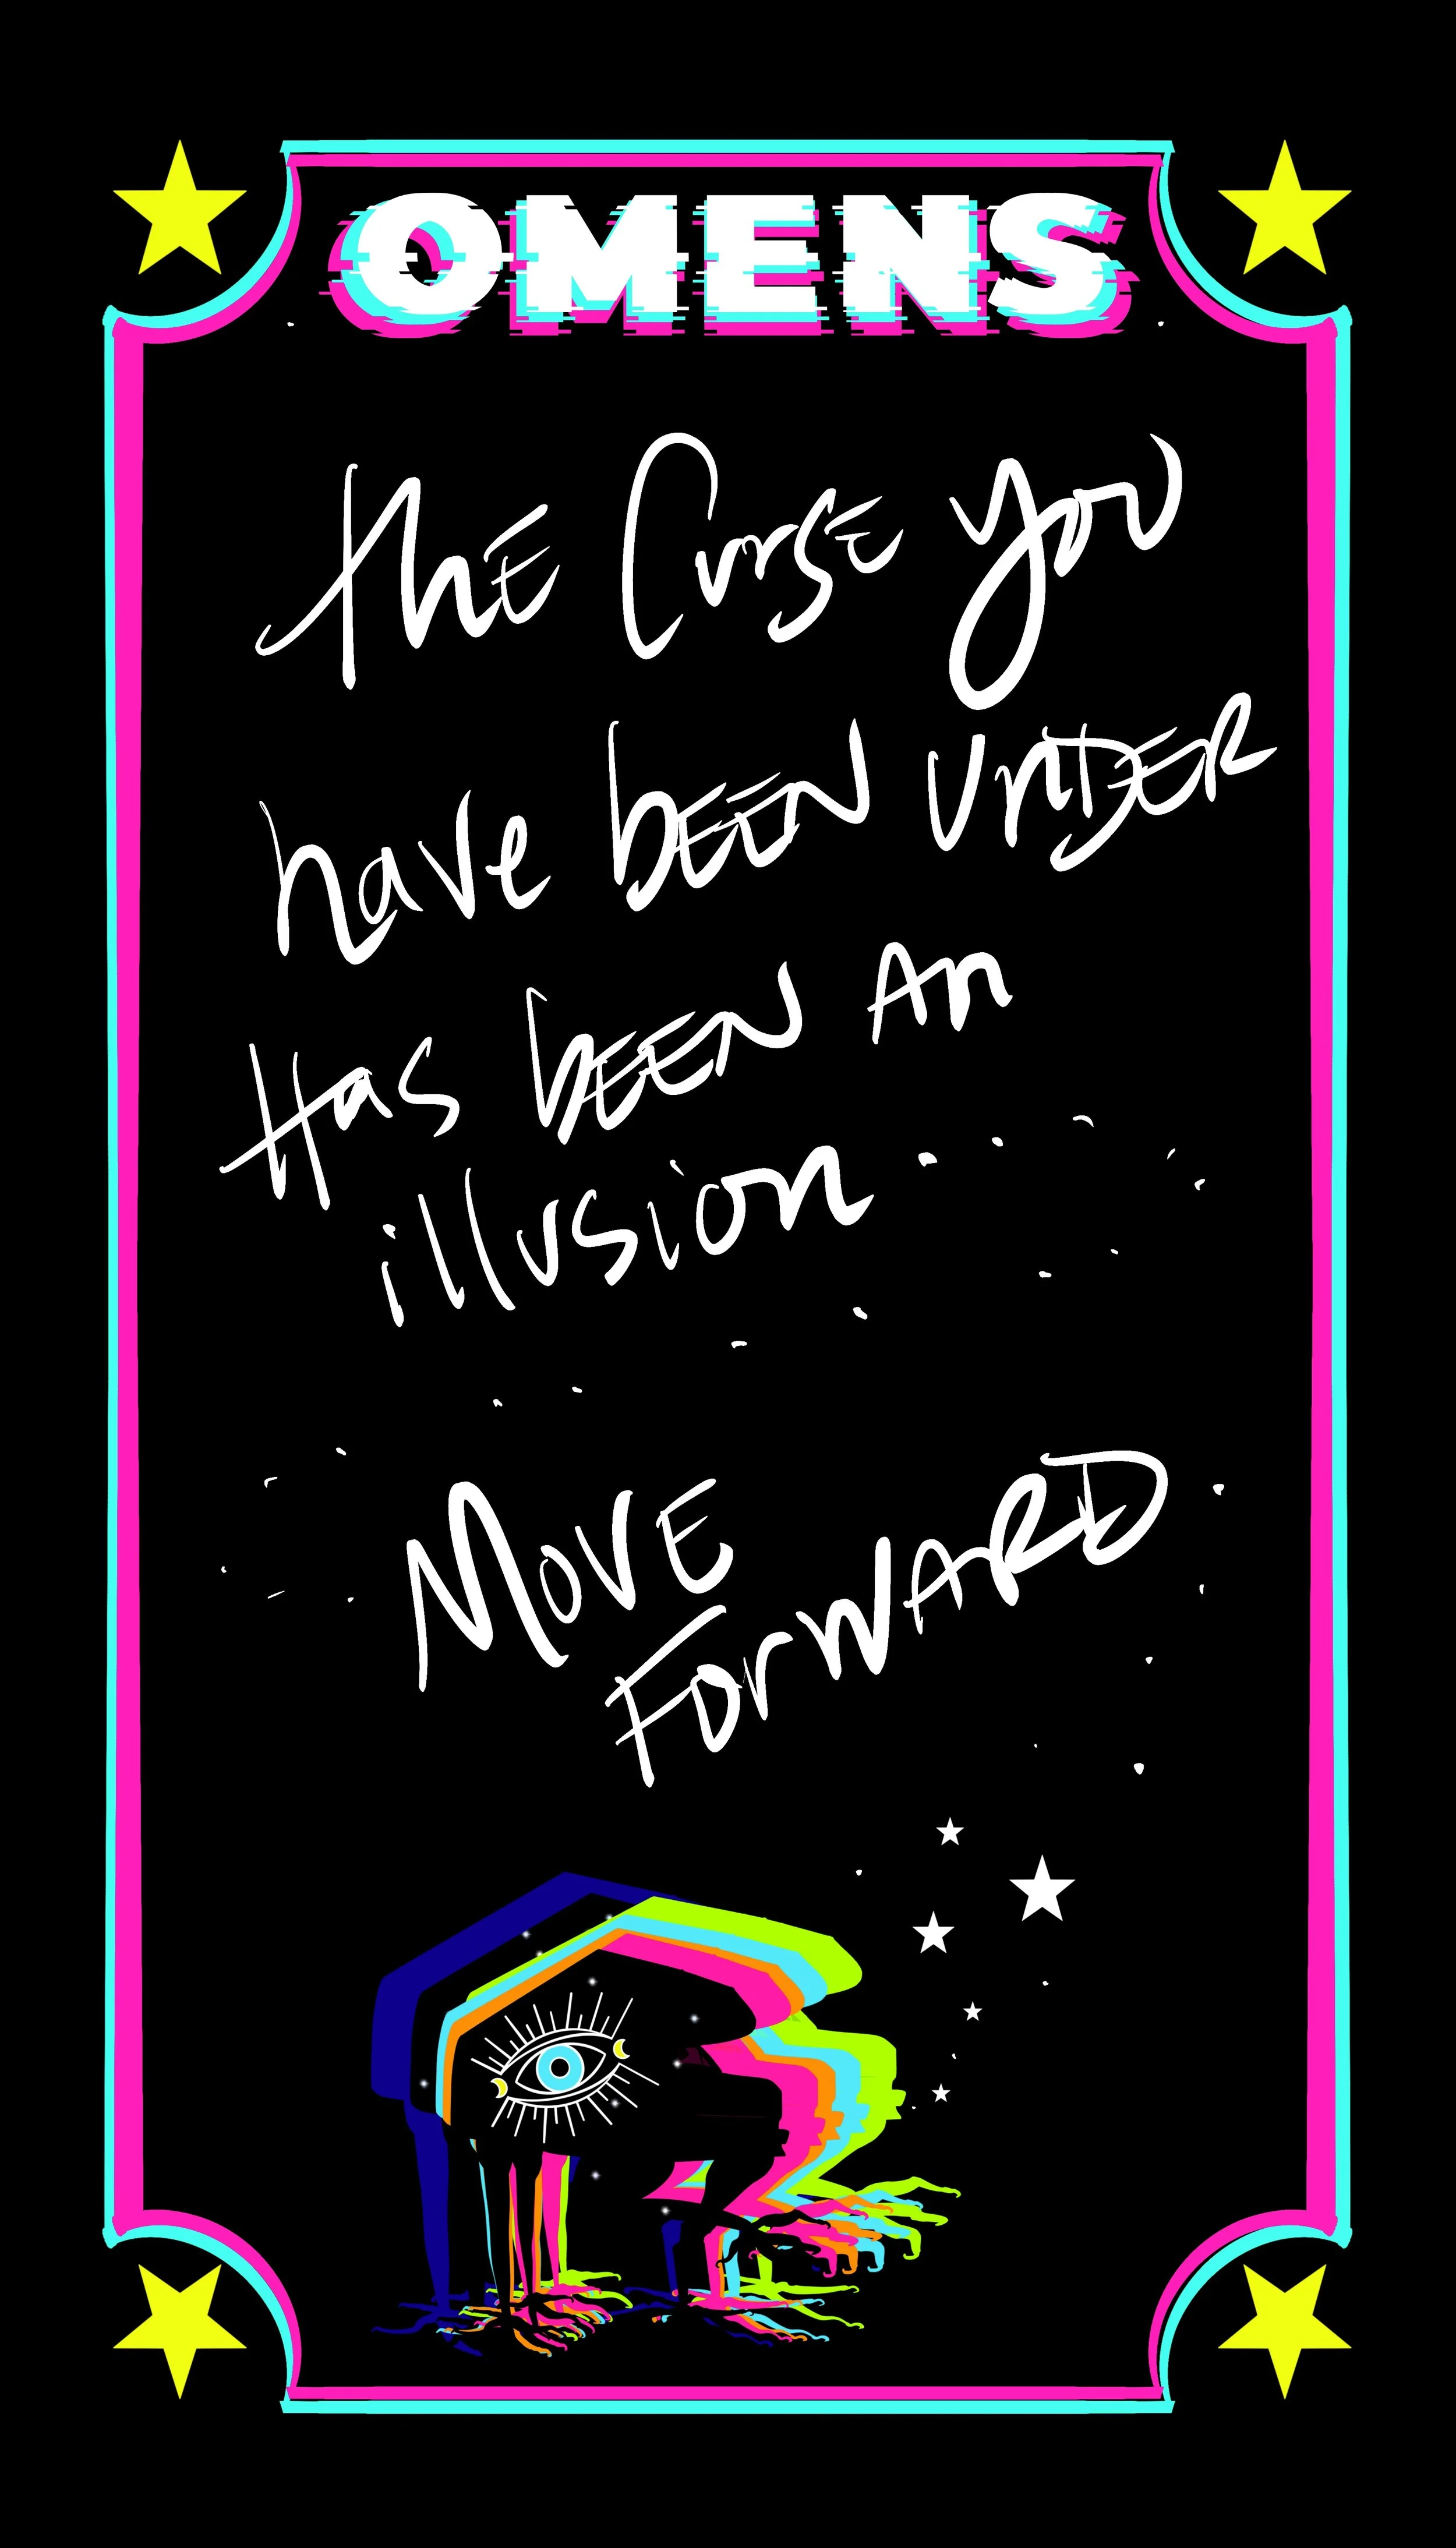 OMENS
thE CursE you
have bEEN UnDER
Has bEEN An
illusion...
MovE
ForWARD